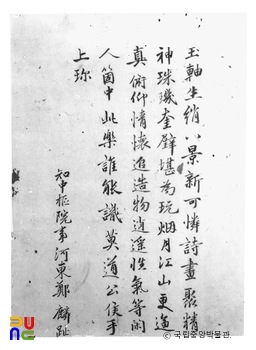 玉軸生綃八景新可憐詩畫聚精
神珠璣奎壁堪爲玩烟月江山更逼
真俯仰情懷追造物逍遥性氣等閑
人箇中此樂誰能識莫道公侯手
上珎
知中樞院事河東鄭麟趾
국립중앙박물관